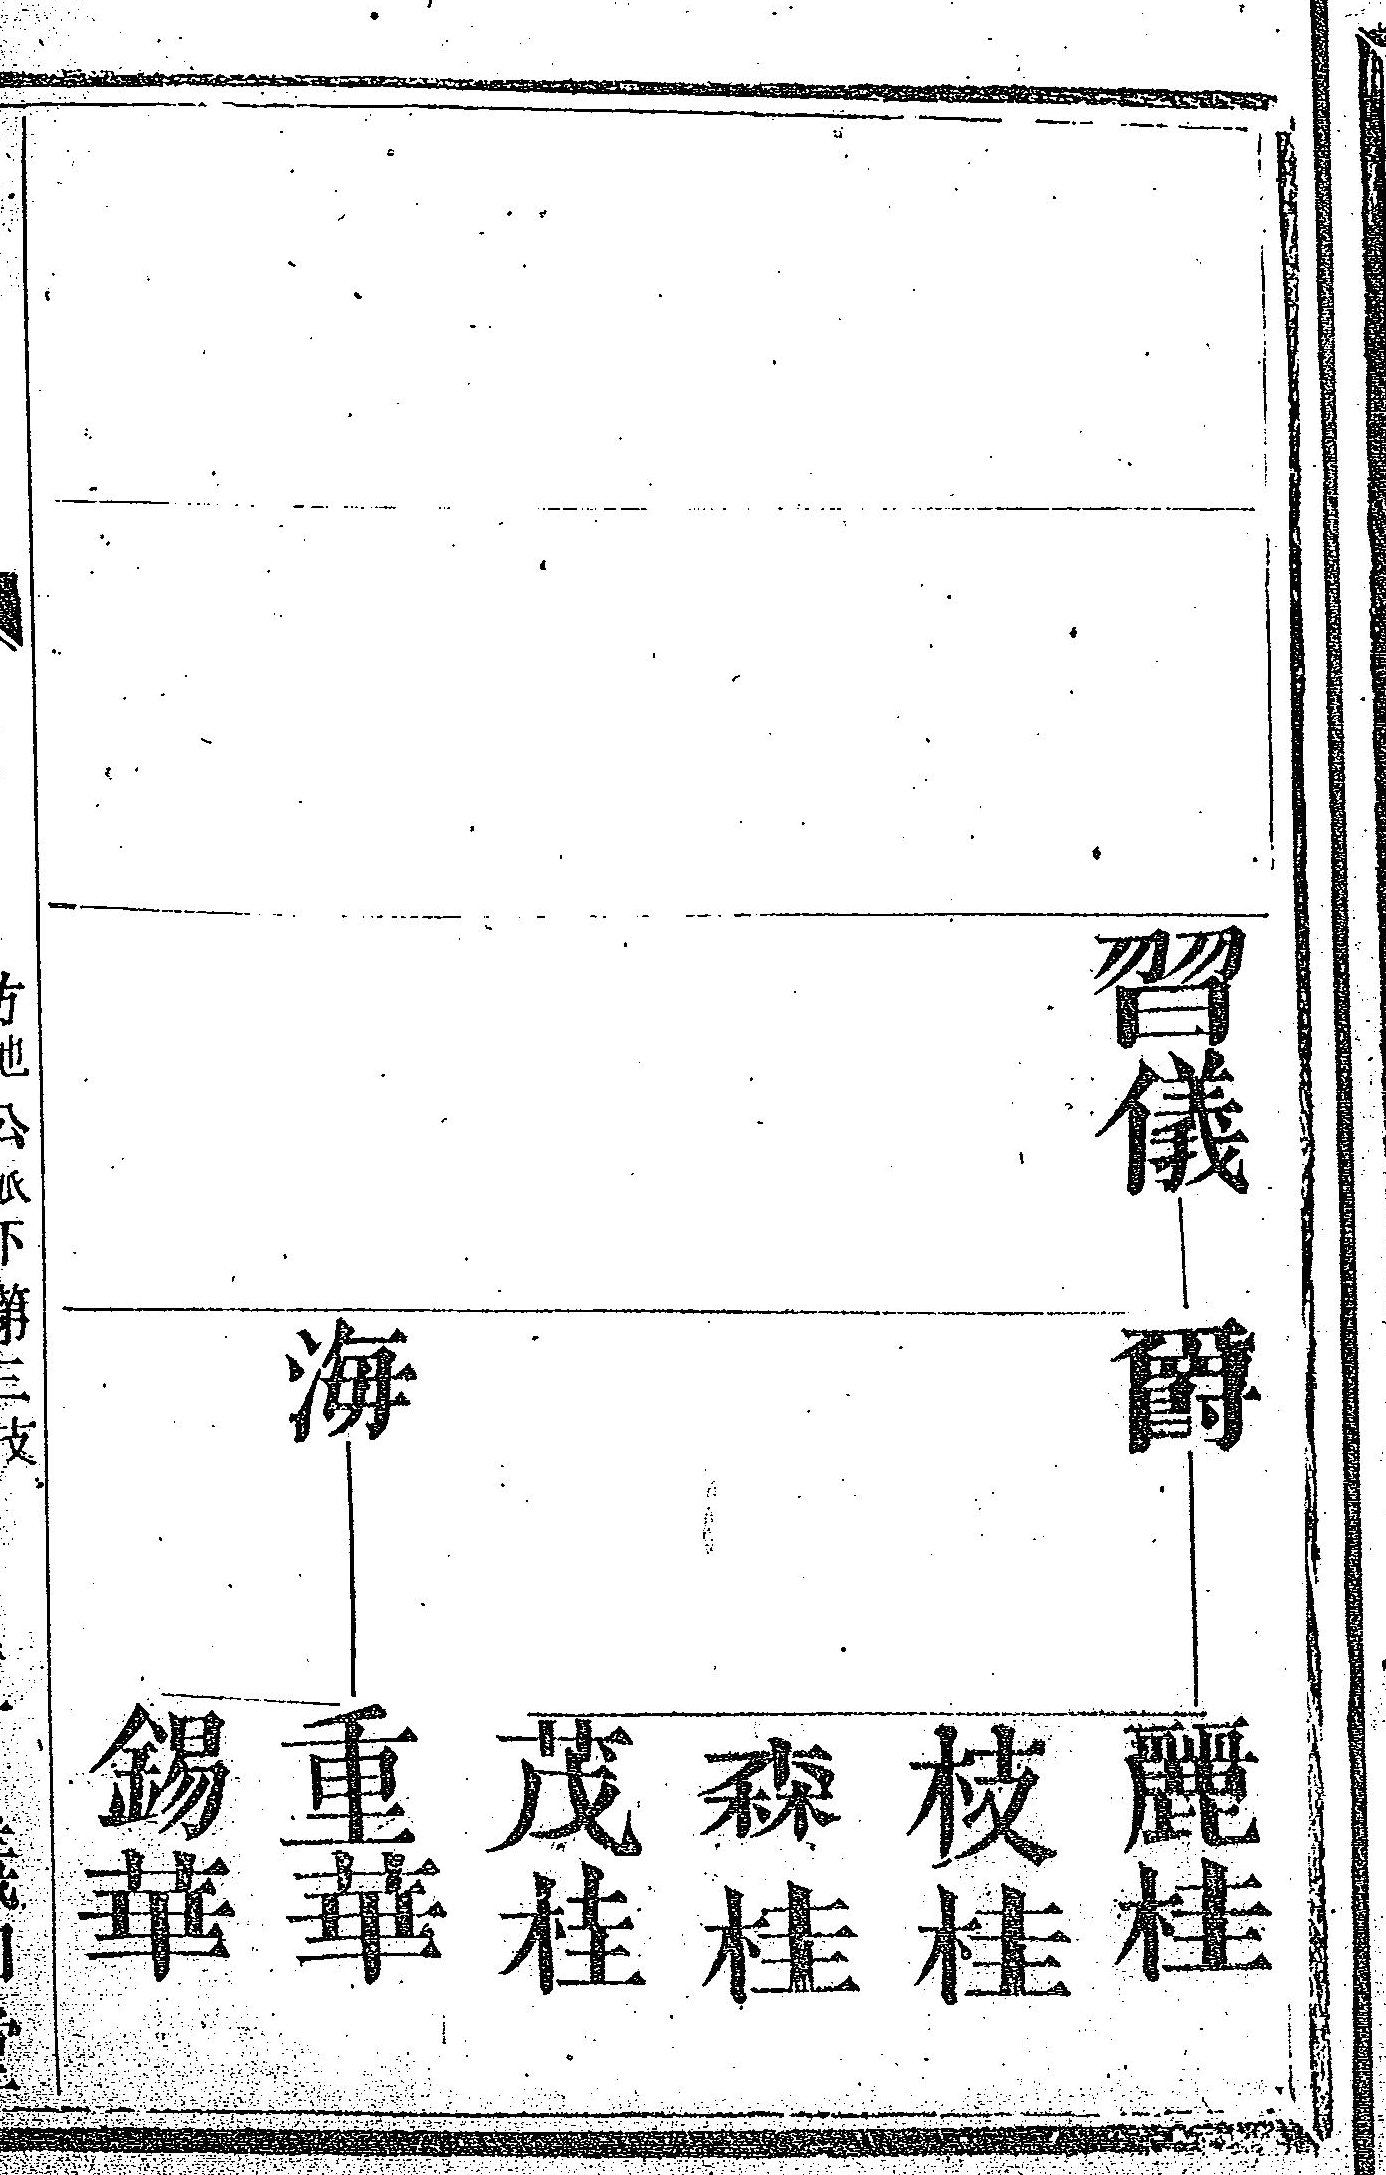 習儀
爵
海
麗桂
枝桂
森桂
茂桂
重華
錫華
公派下第三支